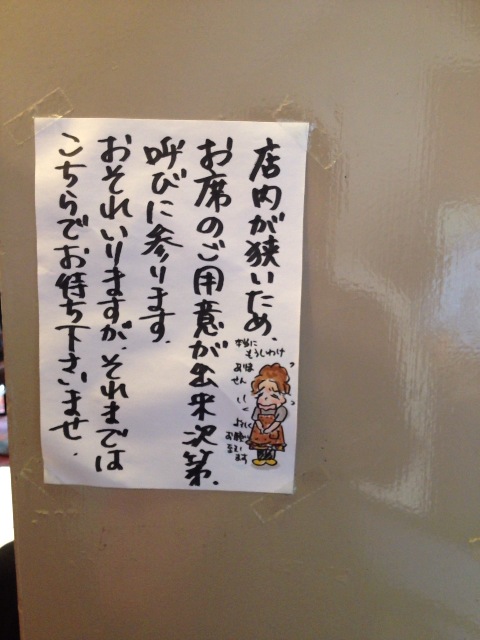 店内が狭いため、
お席のご用意が出来次第、
呼びに参ります。
おそれいりますが、それまでは
こちらでお待ち下さいませ。
本当に
もうしわけ
ありま
せん
よろしく
お願い
致し
ます